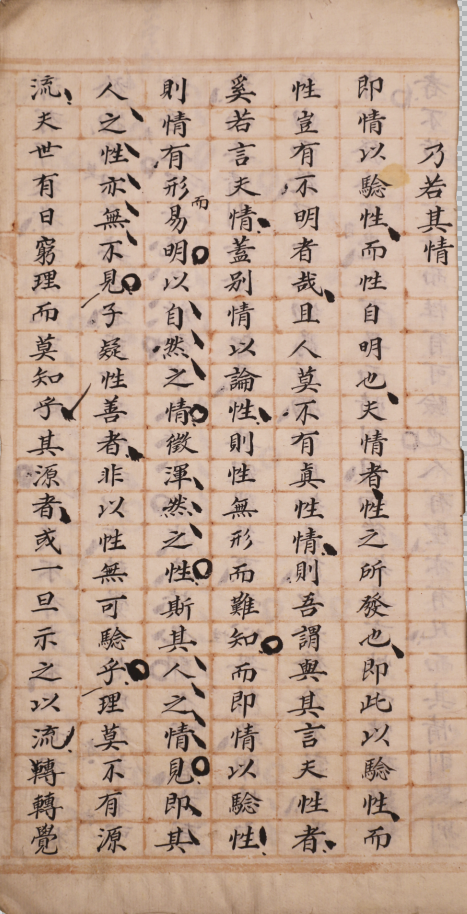 乃若其情
即情以驗性而性自明也夫情者性之所發也即此以驗性而
性豈有不明者哉且人莫不有真性情則吾謂與其言夫性者
奚若言夫情蓋別情以論性則性無形而難知而即情以驗性
則情有形而易明以自然之情徵渾然之性斯其人之情見即其
人之性亦無不見子疑性善者非以性無可驗乎理莫不有源
流夫世有日窮理而莫知乎其源者或一旦示之以流轉轉覺